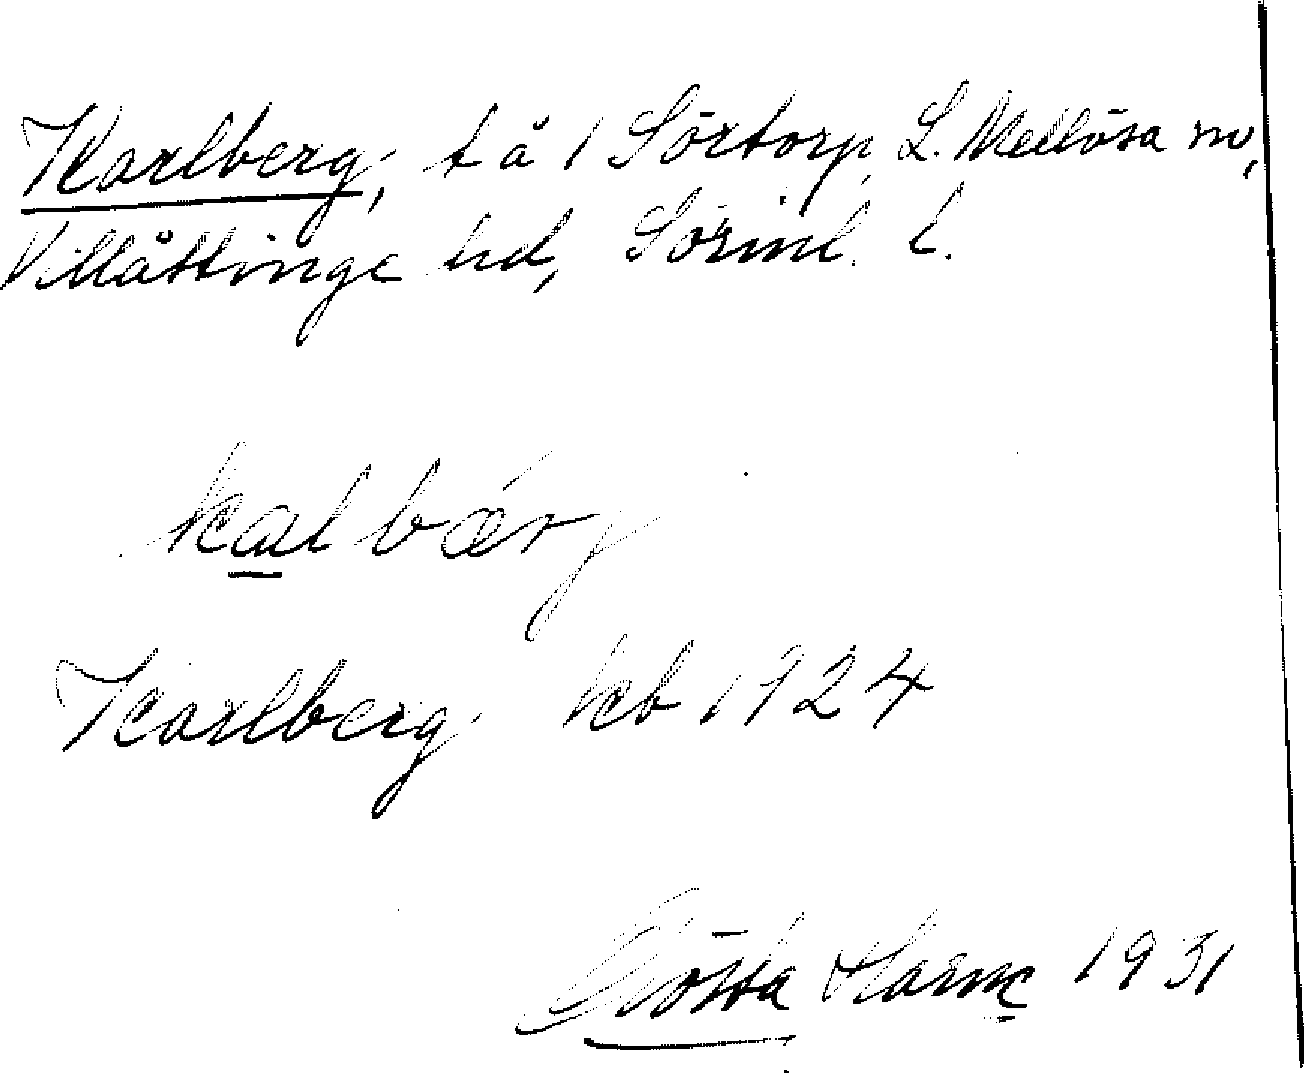 Karlberg, t å 1 Sörtorp, L. Mellösa sn,
Villåttinge hd, Sörml. l.
kalbærj
Karlberg kb 1924
Gösta Harne 1931